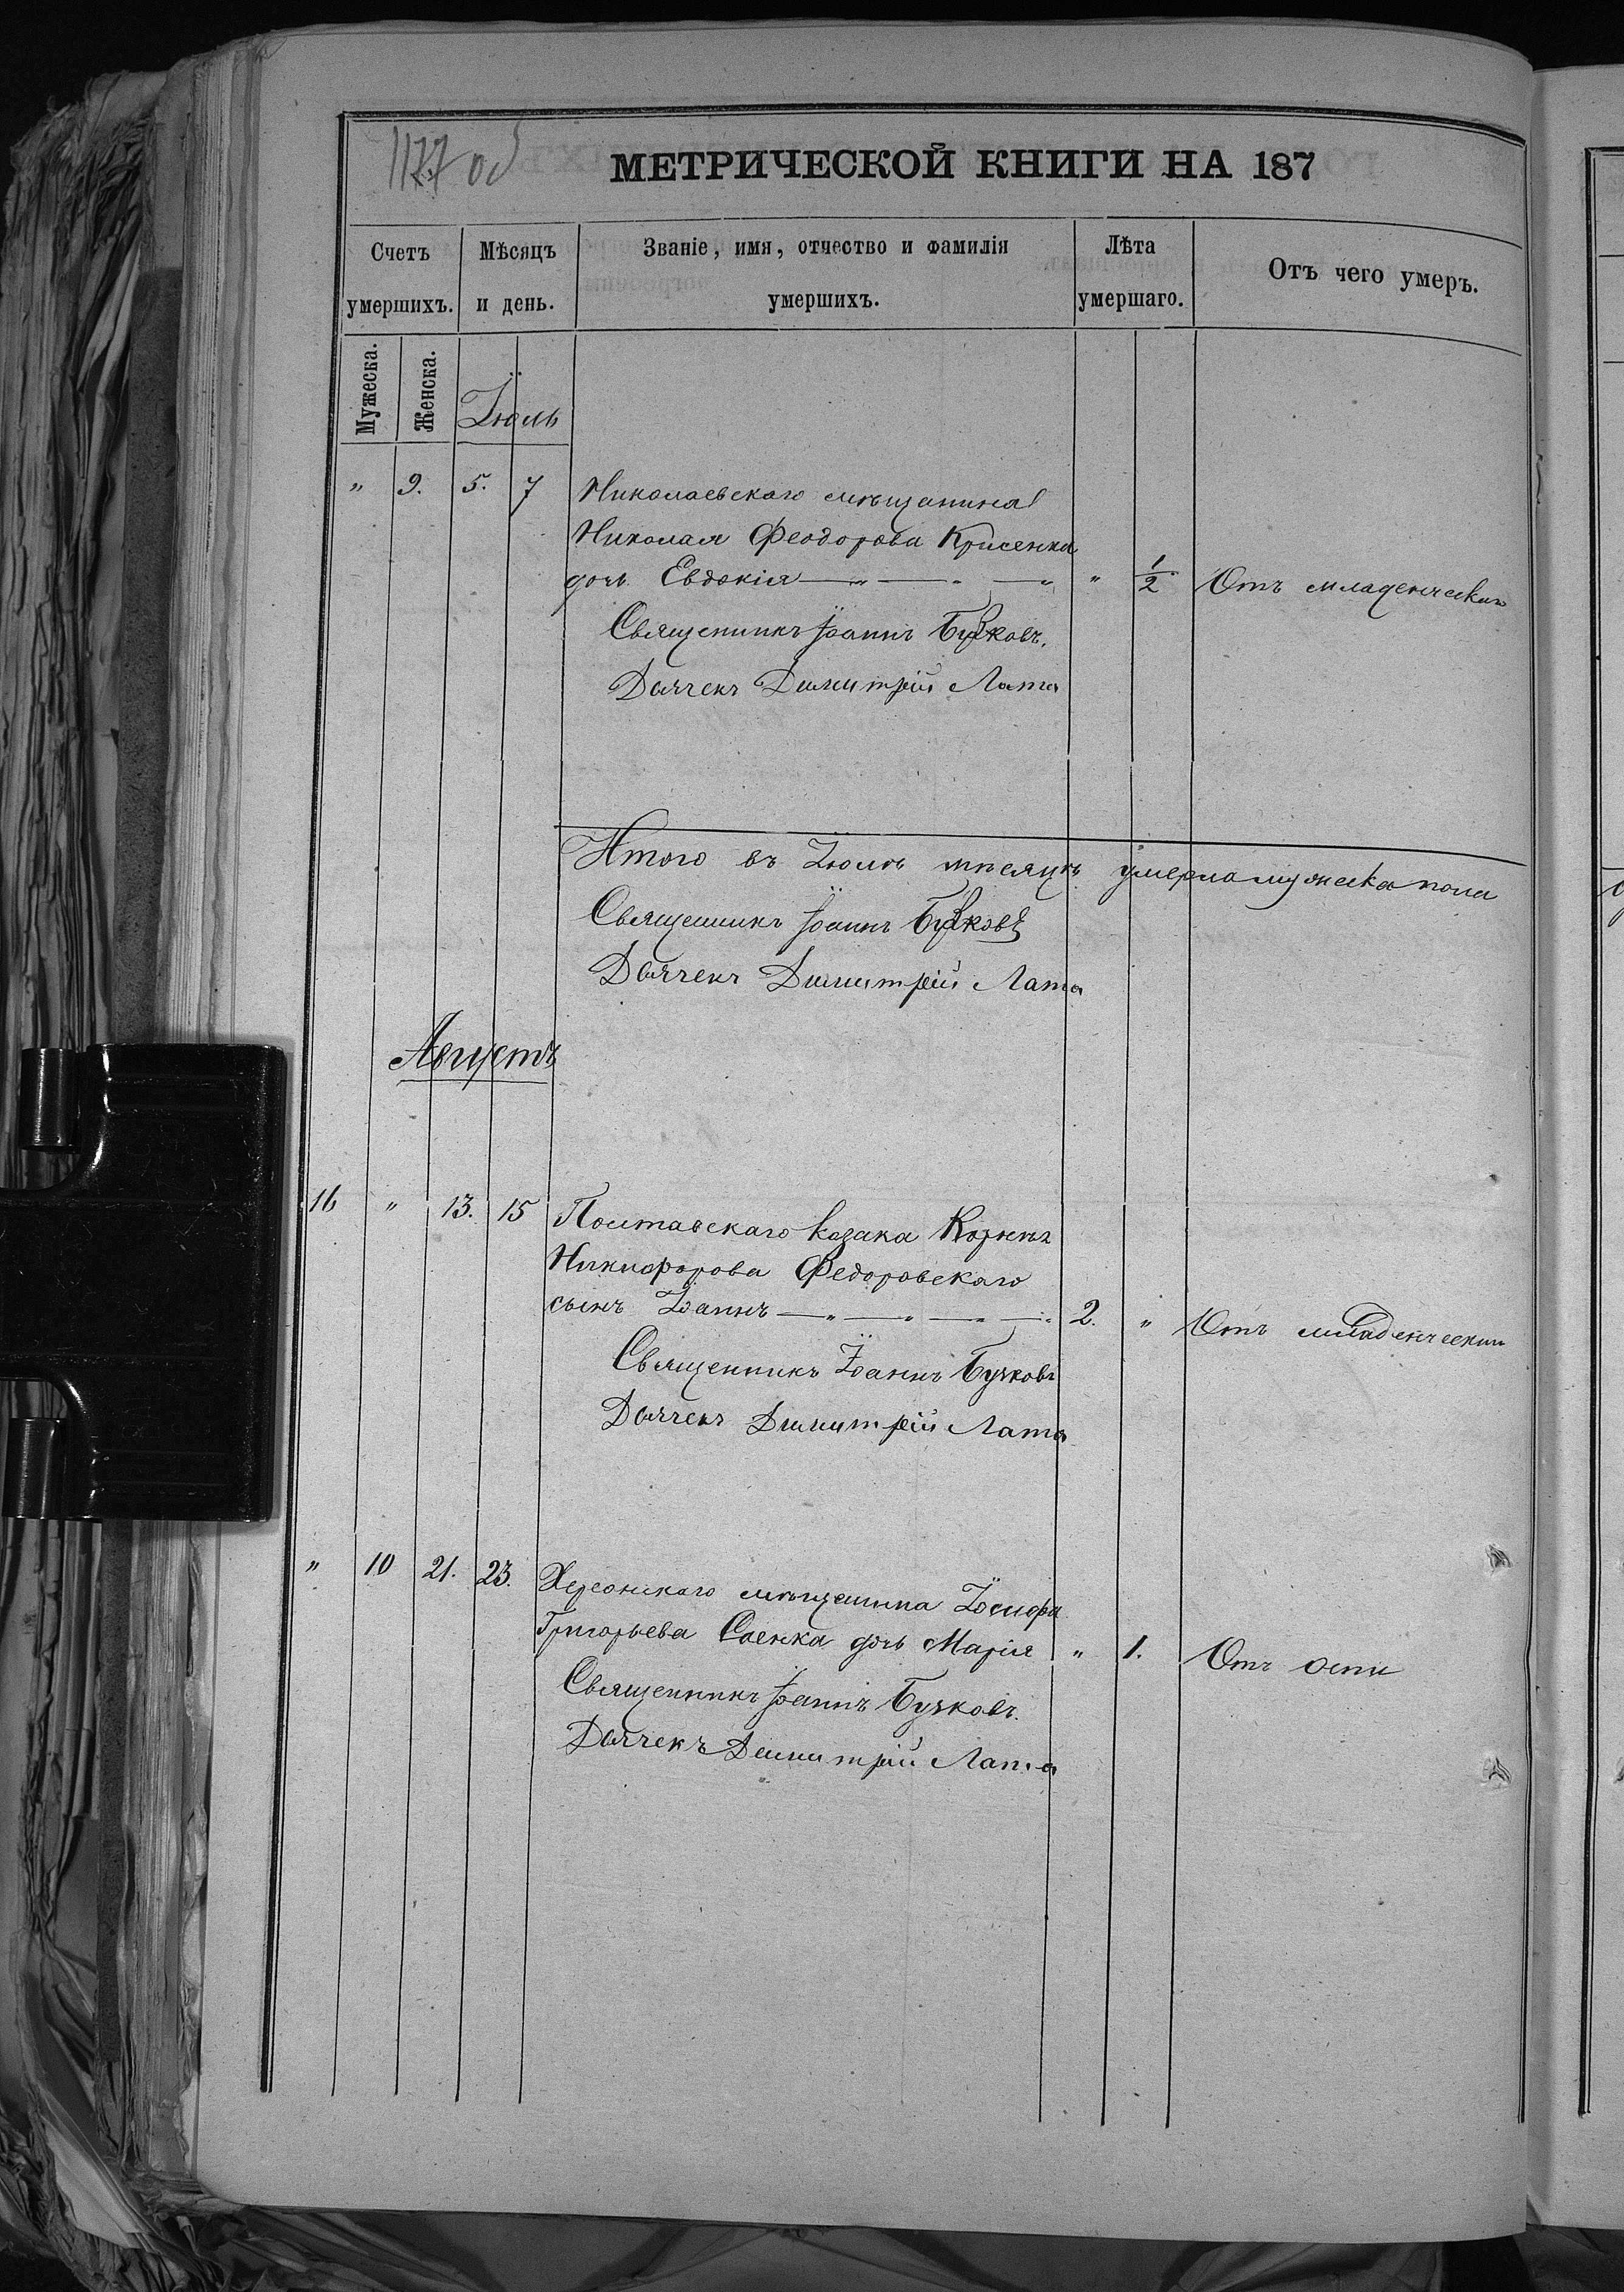 1177 об
МЕТРИЧЕСКОЙ КНИГИ НА 187
Счетъ умершихъ.
Мѣсяцъ и день.
Званіе, имя, отчество и фамилія умершихъ.
Лѣта умершаго.
Отъ чего умеръ.
Мужеска.
Женска.
Іюль
" 9. 5. 7 Николаевскаго мѣщанина
Николая Феодорова Крисенка
дочь Евдокія " 1/2 Отъ младенческих
Священникъ Іоаннъ Бучковъ.
Дьячекъ Димитрій Лата
Итого въ Іюлѣ мѣсяцѣ умерло мужеска пола
Священникъ Іоаннъ Бучковъ
Дьячекъ Димитрій Лата
Августъ
16 " 13. 15 Полтавскаго козака Корнея
Никифорова Федоровскаго
сынъ Іоаннъ 2. " Отъ младенческих
Священникъ Іоаннъ Бучковъ
Дьячекъ Димитрій Лата
" 10 21. 23. Херсонскаго мѣщанина Іосифа
Григорьева Саенка дочь Марія " 1. Отъ оспи
Священникъ Іоаннъ Бучковъ.
Дьячекъ Димитрій Лата